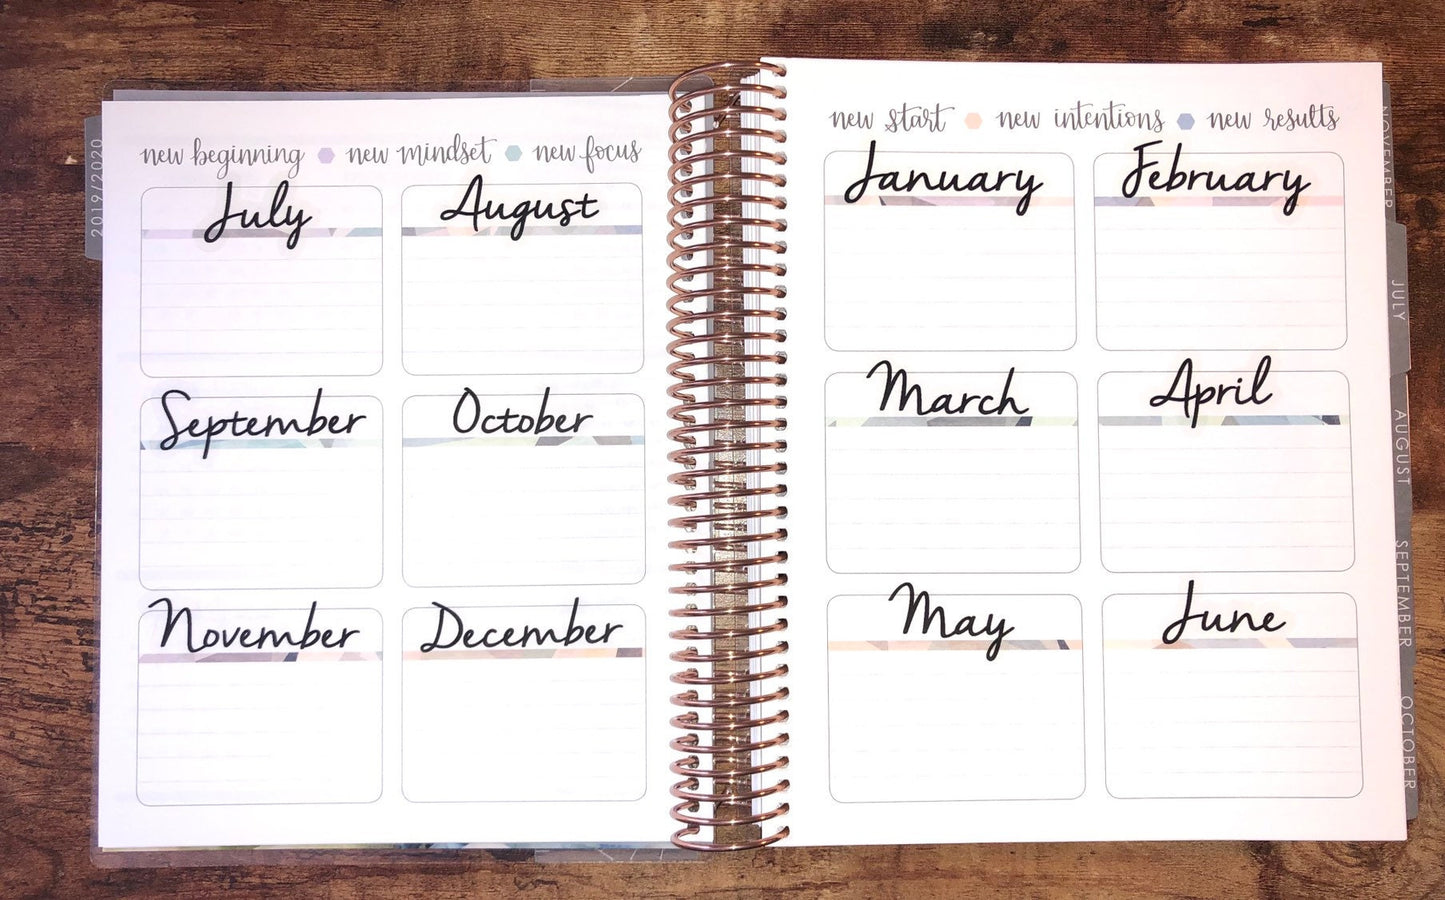 new beginning new mindset new focus
July August
September October
November December
2019/2020
new start new intentions new results
January February
March April
May June
NOVEMBER
JULY
AUGUST
SEPTEMBER
OCTOBER